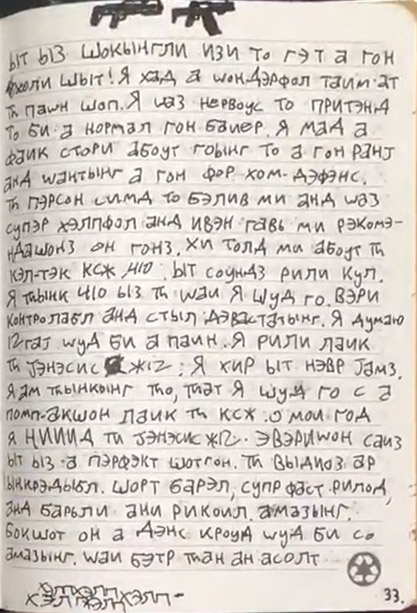 ыт ыз шокынгли изи то гэт а гон
холи шыт! Я хад а wондэрфол таим ат
тһ паwн шоп. Я wаз нервоус то притэнд
то би а нормал гон баиер. Я мад а
фаик стори абоут гоынг то а гон ранј
анд wантынг а гон фор хом-дэфэнс.
тһ пэрсон симд то бэлив ми анд wаз
супэр хэлпфол анд ивэн гавь ми рэкомэ-
ндашонз он гонз. хи толд ми абоут тһ
кэл-тэк ксж 410. ыт соундз рили кул.
Я тһынк 410 ыз тһ wаи Я шуд го. вэри
контролабл анд стыл дэвастатынг. Я думаю
12 гај wуд би а паин. Я рили лаик
тһ јэнэсис ж12. Я хир ыт нэвр јамз.
Я ам тһынкынг тһо, тһат Я шуд го с а
помп-акшон лаик тһ ксж. о мои год
Я НИИИД тһ јэнэсис ж12. эвэриwон саиз
ыт ыз а пэрфэкт шотгон. тһ выдиоз ар
ынкрэдыбл. шорт барэл, супр фаст рилод,
анд барьли ани рикоил. амазынг.
бокшот он а дэнс кроуд wуд би со
амазынг. wаи бэтр тһан ан асолт
33.